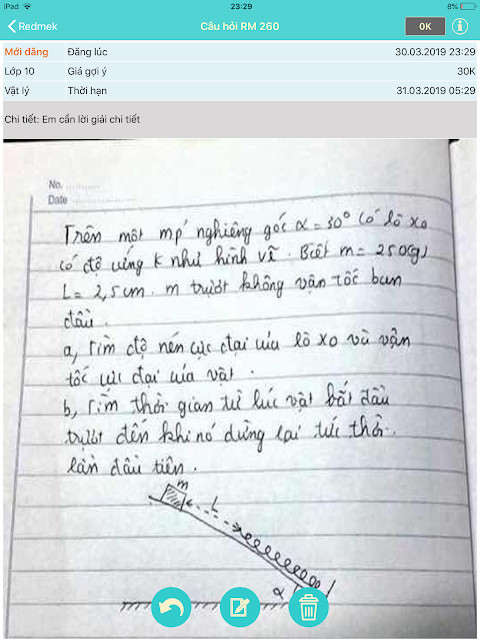 iPad
23:29
8%
Redmek
Câu hỏi RM 260
0K
Mới đăng
Đăng lúc
30.03.2019 23:29
Lớp 10
Giá gợi ý
30K
Vật lý
Thời hạn
31.03.2019 05:29
Chi tiết: Em cần lời giải chi tiết
No.
Date
Trên một mp' nghiêng góc α = 30° Có lò xo
có độ cứng K như hình vẽ. Biết m = 250(g)
L = 2,5cm. m trượt không vận tốc ban
đầu.
a, Tìm độ nén cực đại của lò xo và vận
tốc cực đại của vật.
b, Tìm thời gian từ lúc vật bắt đầu
trượt đến khi nó dừng lại tức thời
lần đầu tiên.
m
L
α